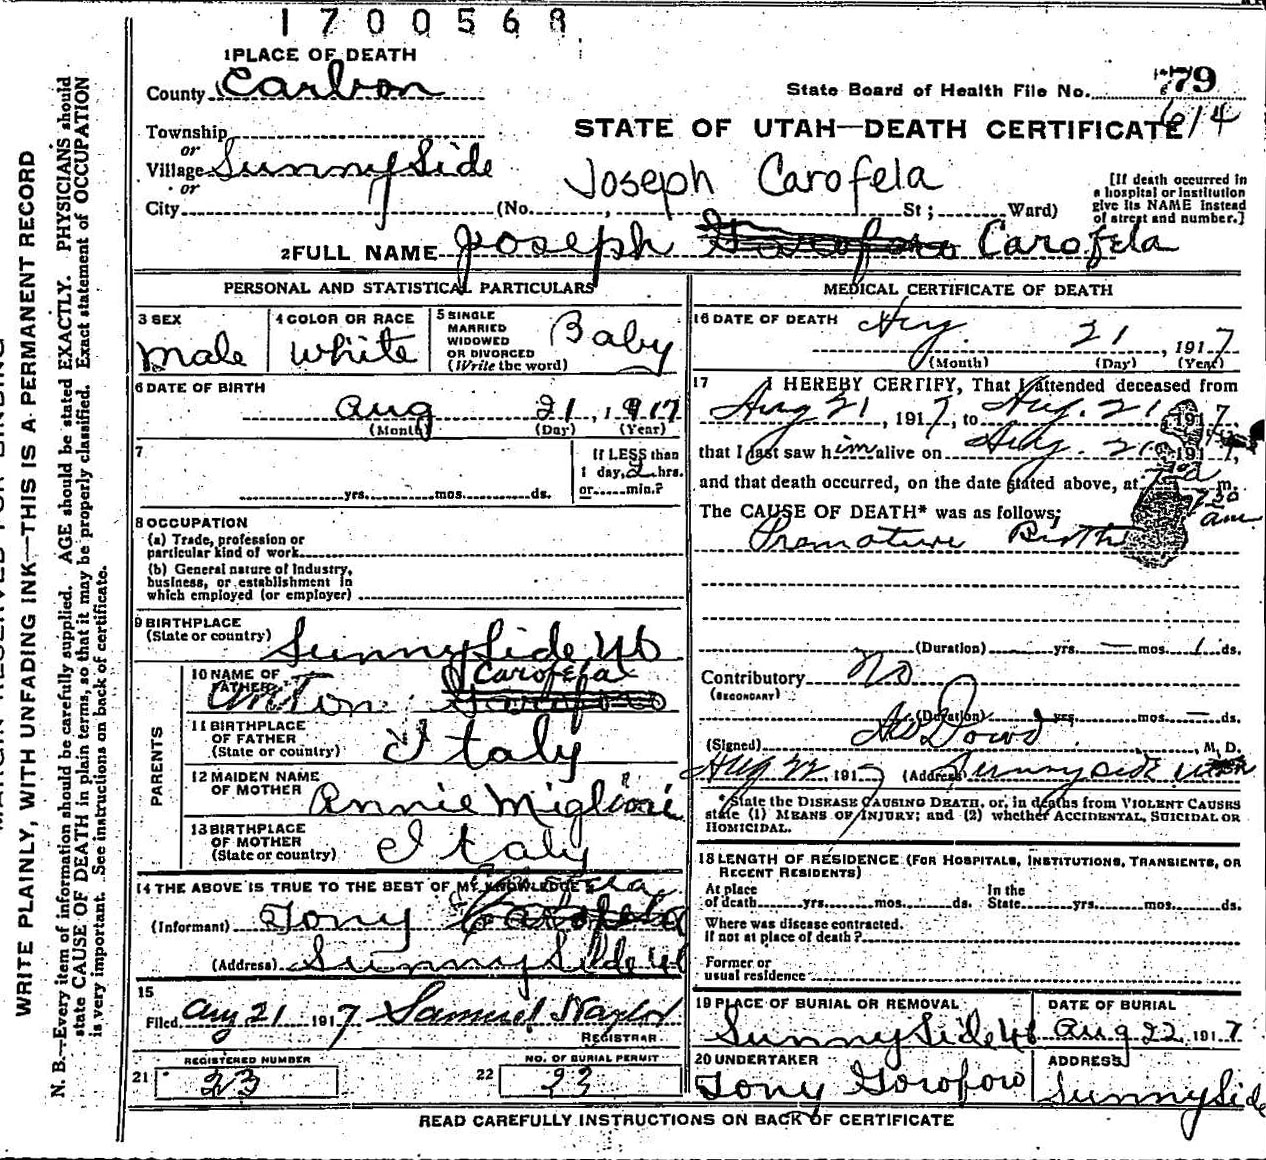 1700568
1 PLACE OF DEATH
County Carbon
State Board of Health File No. 79
614
Township
or
STATE OF UTAH—DEATH CERTIFICATE
Village SunnySide
or
Joseph Carofela
[If death occurred in
a hospital or institution
give its NAME instead
of street and number.]
City (No. , St ; Ward)
2 FULL NAME Joseph Carofela
PERSONAL AND STATISTICAL PARTICULARS
3 SEX
male
4 COLOR OR RACE
White
5 SINGLE
MARRIED
WIDOWED
OR DIVORCED
(Write the word)
Baby
6 DATE OF BIRTH
Aug 21, 1917
(Month) (Day) (Year)
7
yrs. mos. ds.
If LESS than
1 day, 2 hrs.
or min.?
8 OCCUPATION
(a) Trade, profession or
particular kind of work
(b) General nature of industry,
business, or establishment in
which employed (or employer)
9 BIRTHPLACE
(State or country) SunnySide Ut
PARENTS
10 NAME OF
FATHER Anton Carofela
11 BIRTHPLACE
OF FATHER
(State or country) Italy
12 MAIDEN NAME
OF MOTHER Annie
13 BIRTHPLACE
OF MOTHER
(State or country) Italy
14 THE ABOVE IS TRUE TO THE BEST OF MY KNOWLEDGE
(Informant) Tony
(Address) SunnySide Ut
15
Filed Aug 21 1917 Samuel Naylor
REGISTRAR
REGISTERED NUMBER
21 23
NO. OF BURIAL PERMIT
22 23
MEDICAL CERTIFICATE OF DEATH
16 DATE OF DEATH Aug. 21, 1917
(Month) (Day) (Year)
17 I HEREBY CERTIFY, That I attended deceased from
Aug 21, 1917, to Aug. 21 1917
that I last saw him alive on Aug. 21 191
and that death occurred, on the date stated above, at m.
7 30
am
The CAUSE OF DEATH* was as follows:
Premature Birth
(Duration) yrs. — mos. 1 ds.
Contributory No
(SECONDARY)
(Duration) yrs. mos. — ds.
(Signed) Dowd, M. D.
Aug 22 1917 (Address) Sunnyside Utah
*State the DISEASE CAUSING DEATH, or, in deaths from VIOLENT CAUSES
state (1) MEANS OF INJURY; and (2) whether ACCIDENTAL, SUICIDAL OR
HOMICIDAL.
18 LENGTH OF RESIDENCE (FOR HOSPITALS, INSTITUTIONS, TRANSIENTS, OR
RECENT RESIDENTS)
At place
of death yrs. mos. ds.
In the
State yrs. mos. ds.
Where was disease contracted.
if not at place of death?
Former or
usual residence
19 PLACE OF BURIAL OR REMOVAL
SunnySide Ut
DATE OF BURIAL
Aug 22, 1917
20 UNDERTAKER
Tony
ADDRESS
SunnySide
READ CAREFULLY INSTRUCTIONS ON BACK OF CERTIFICATE
WRITE PLAINLY, WITH UNFADING INK—THIS IS A PERMANENT RECORD
N. B.—Every item of information should be carefully supplied. AGE should be stated EXACTLY. PHYSICIANS should
state CAUSE OF DEATH in plain terms, so that it may be properly classified. Exact statement of OCCUPATION
is very important. See instructions on back of certificate.